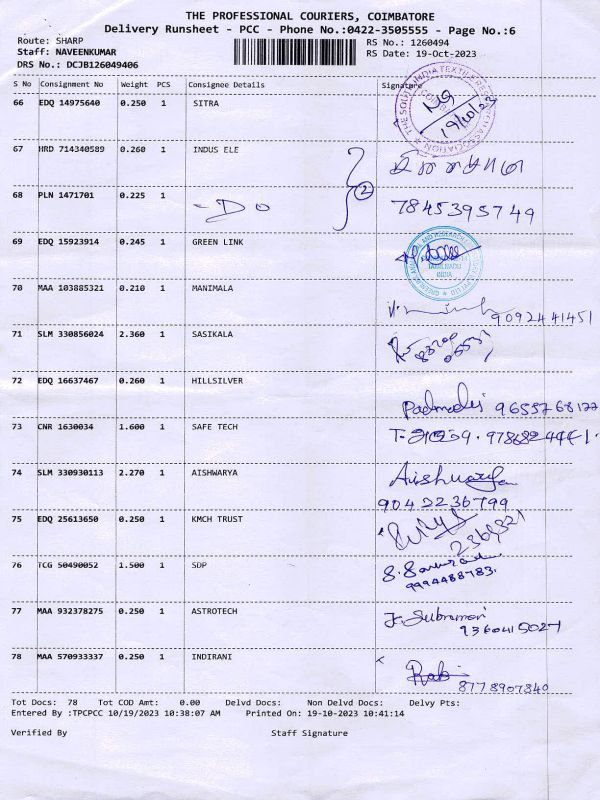 THE PROFESSIONAL COURIERS, COIMBATORE
Delivery Runsheet - PCC - Phone No.:0422-3505555 - Page No.:6
Route: SHARP RS No.: 1260494
Staff: NAVEENKUMAR RS Date: 19-Oct-2023
DRS No.: DCJB126049406
S No Consignment No Weight PCS Consignee Details Signature
66 EDQ 14975640 0.250 1 SITRA
19/10/23
67 HRD 714340589 0.260 1 INDUS ELE
68 PLN 1471701 0.225 1 - Do 2 7845395749
69 EDQ 15923914 0.245 1 GREEN LINK
TAMILNADU
INDIA
70 MAA 103885321 0.210 1 MANIMALA
9092441451
71 SLM 330856024 2.360 1 SASIKALA
72 EDQ 16637467 0.260 1 HILLSILVER
73 CNR 1630034 1.600 1 SAFE TECH
74 SLM 330930113 2.270 1 AISHWARYA Aishwarya
75 EDQ 25613650 0.250 1 KMCH TRUST
76 TCG 50490052 1.500 1 SDP
9994488783.
77 MAA 932378275 0.250 1 ASTROTECH
9360415027
78 MAA 570933337 0.250 1 INDIRANI
8778907840
Tot Docs: 78 Tot COD Amt: 0.00 Delvd Docs: Non Delvd Docs: Delvy Pts:
Entered By :TPCPCC 10/19/2023 10:38:07 AM Printed On: 19-10-2023 10:41:14
Verified By Staff Signature